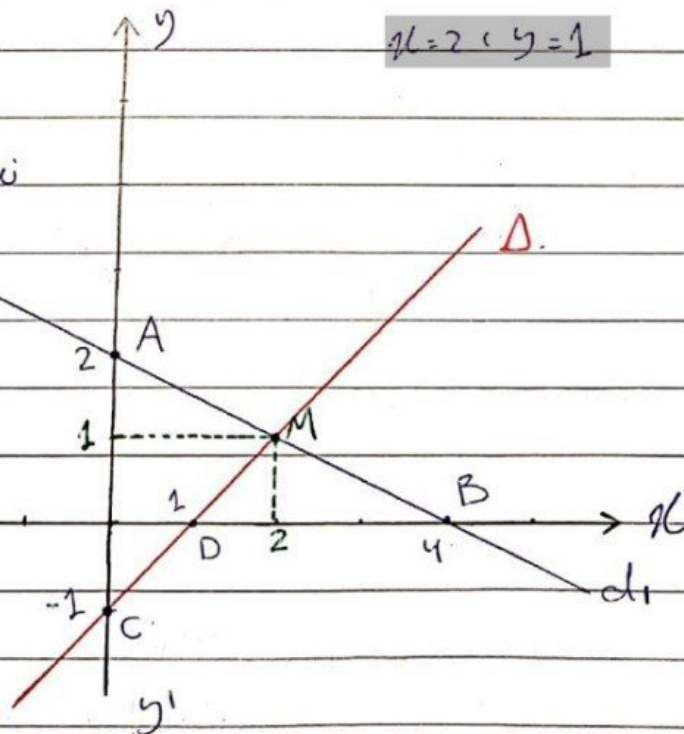 y
x=2, y=1
Δ.
2 A
1 M
B
1
x
D 2 4
d1
-1
C
y'